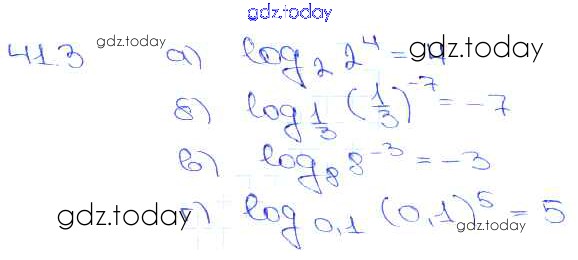 gdz.today
41.3 gdz.today а) log₂ 2⁴ = 4 gdz.today
б) log_{1/3} (1/3)⁻⁷ = -7
в) log₈ 8⁻³ = -3
gdz.today г) log_{0,1} (0,1)⁵ = 5 gdz.today